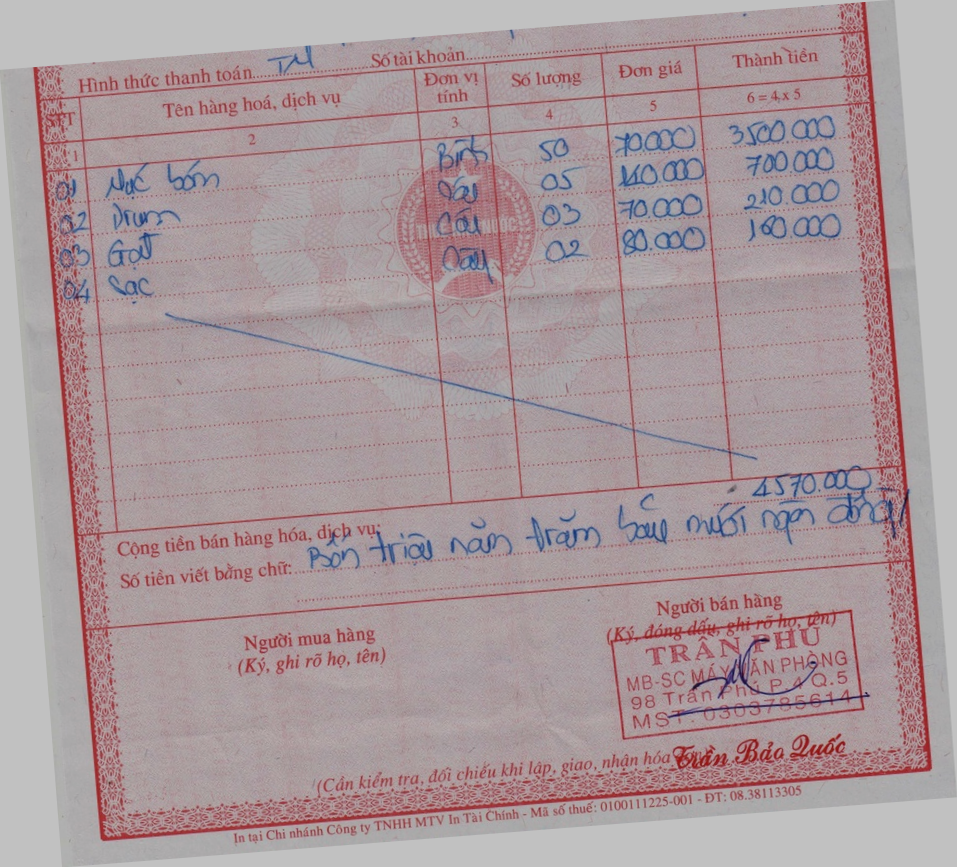 Hình thức thanh toán TM Số tài khoản
STT Tên hàng hoá, dịch vụ Đơn vị tính Số lượng Đơn giá Thành tiền
1 2 3 4 5 6 = 4 x 5
01 Mực bơm Bình 50 70.000 3500.000
02 Drum Cây 05 140.000 700.000
03 Gạt Cây 03 70.000 210.000
04 Sạc Cây 02 80.000 160.000
Cộng tiền bán hàng hóa, dịch vụ: 4570.000
Số tiền viết bằng chữ: Bốn triệu năm trăm bảy mươi ngàn đồng
Người mua hàng Người bán hàng
(Ký, ghi rõ họ, tên) (Ký, đóng dấu, ghi rõ họ, tên)
TRẦN PHÚ
MB-SC MÁY VĂN PHÒNG
98 Trần Phú P.4 Q.5
MST: 0303785614
Trần Bảo Quốc
(Cần kiểm tra, đối chiếu khi lập, giao, nhận hóa
In tại Chi nhánh Công ty TNHH MTV In Tài Chính - Mã số thuế: 0100111225-001 - ĐT: 08.38113305